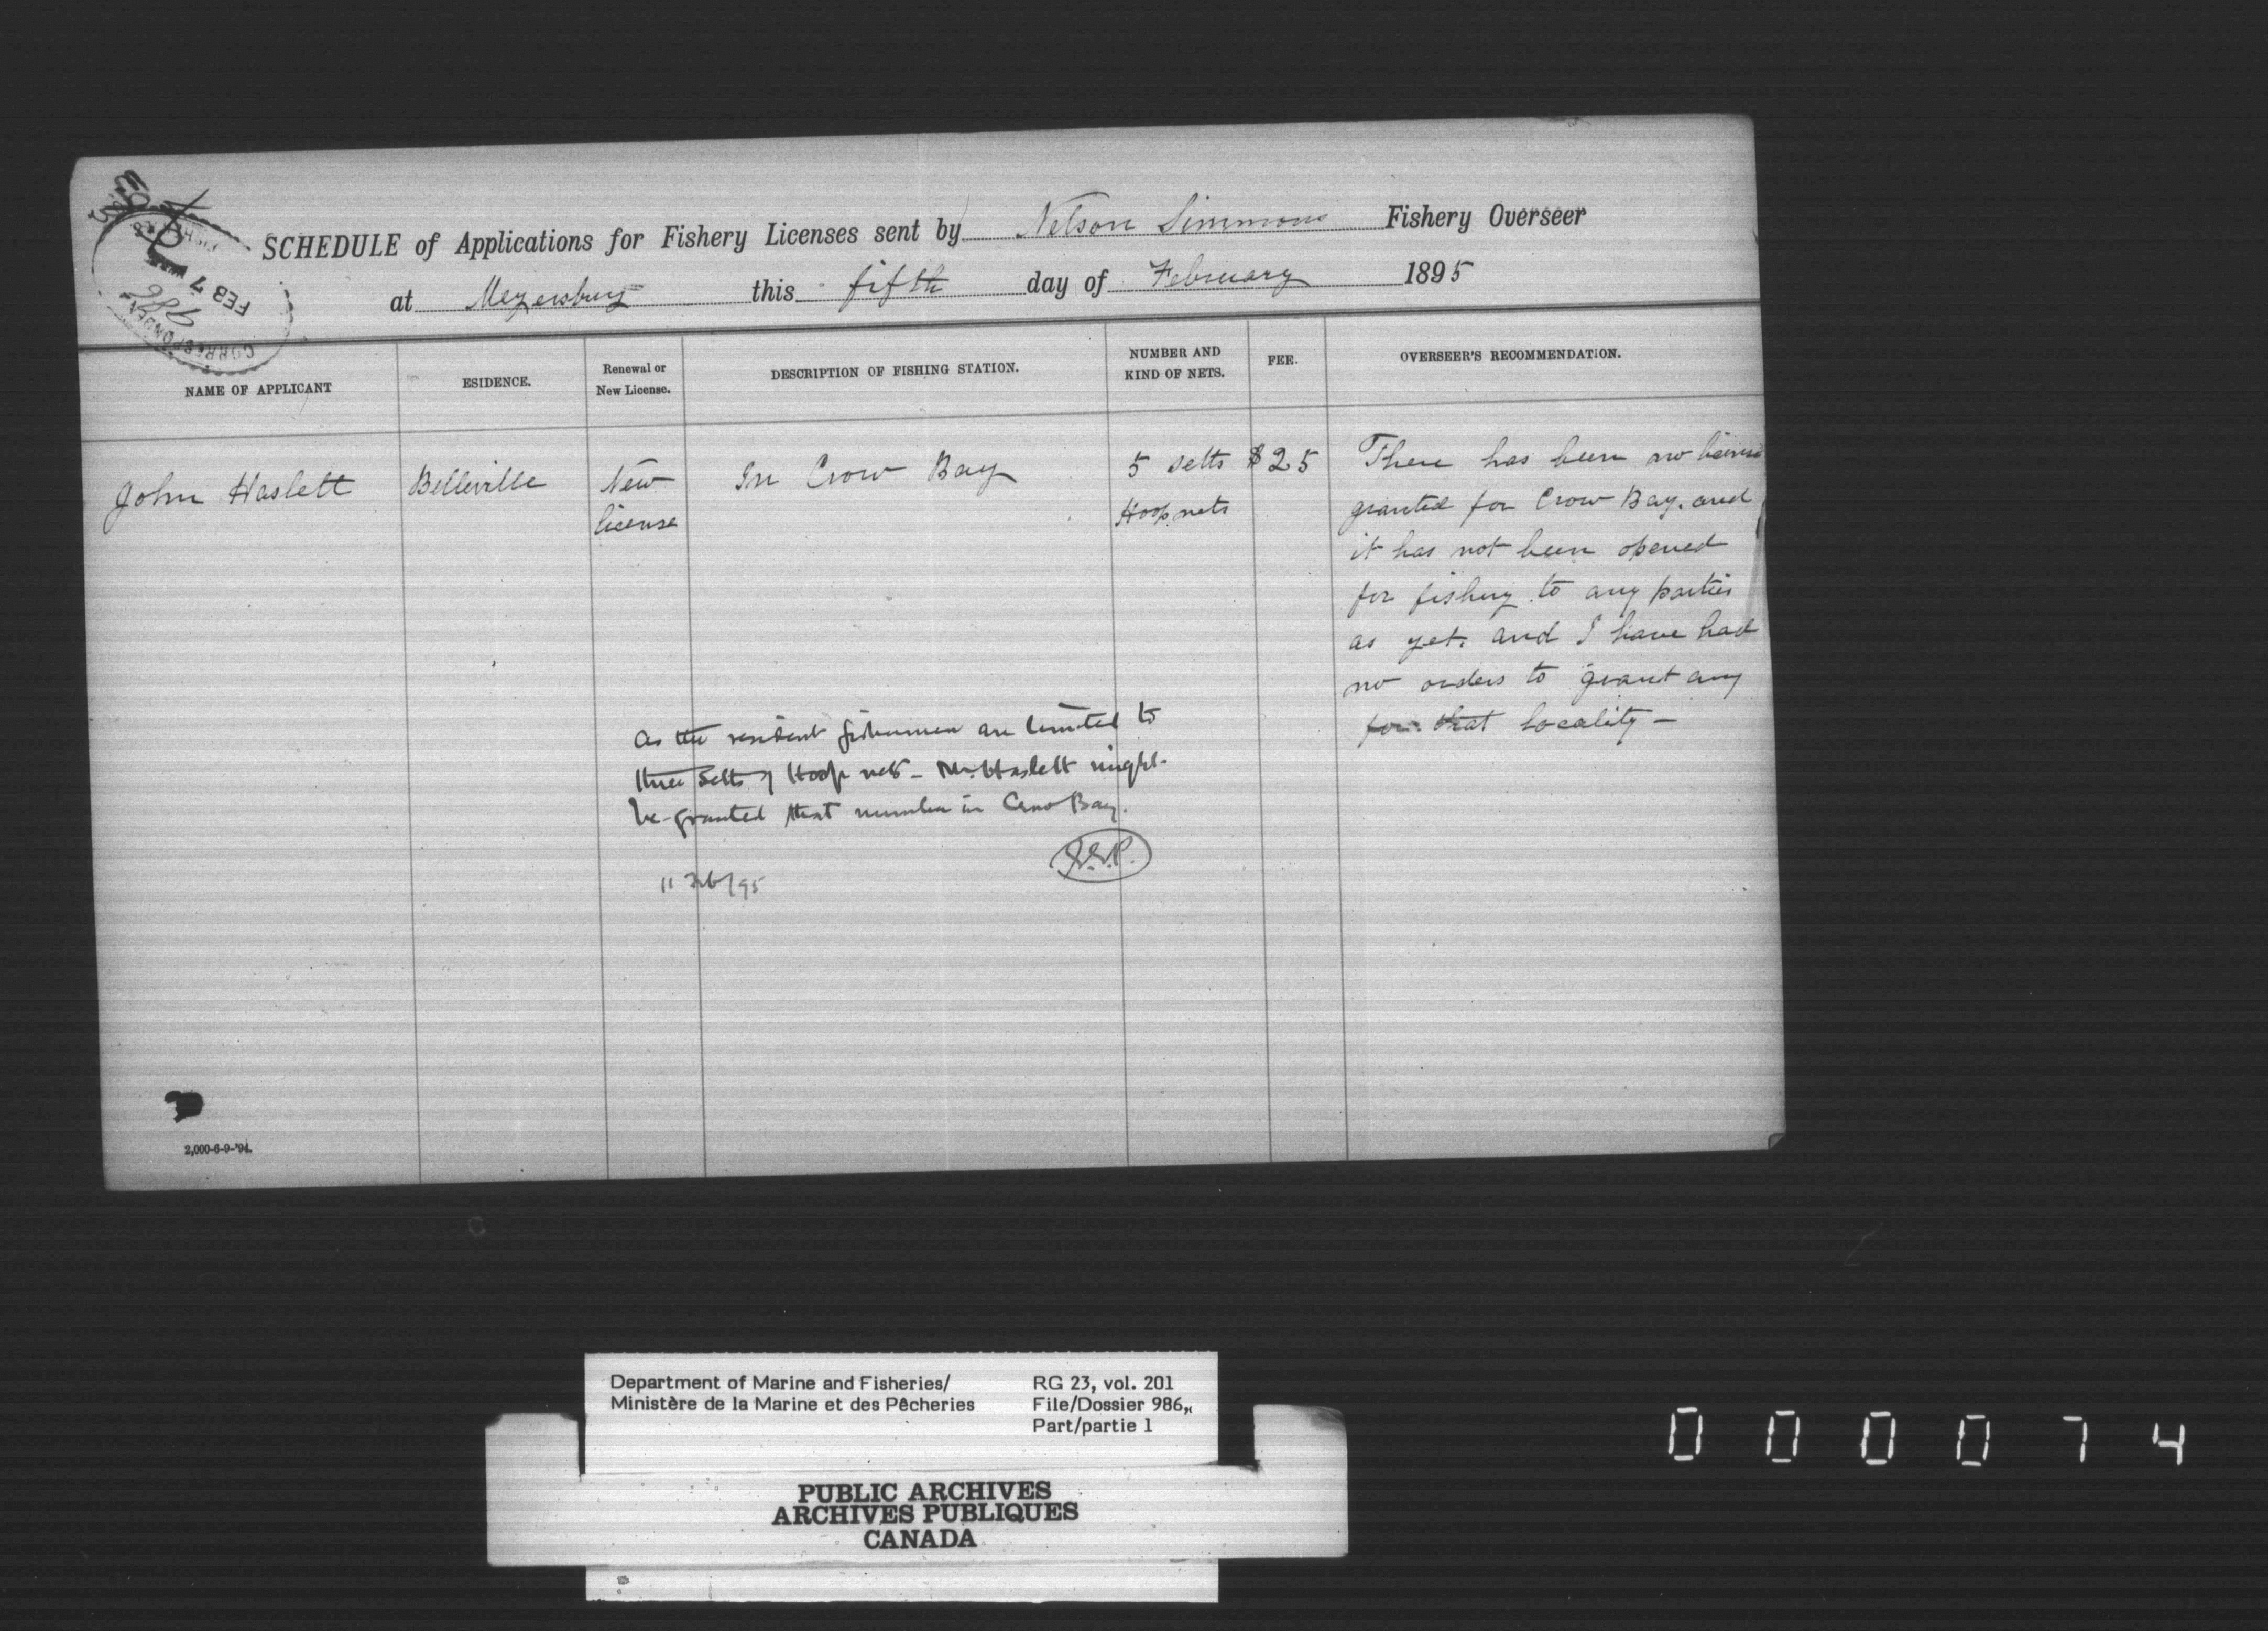 SCHEDULE of Applications for Fishery Licenses sent by Nelson Simmons Fishery Overseer
at Meyersburg this fifth day of February 1895
FEB 7
986
CORRESPONDEN
NAME OF APPLICANT
ESIDENCE.
Renewal or
New License.
DESCRIPTION OF FISHING STATION.
NUMBER AND
KIND OF NETS.
FEE.
OVERSEER'S RECOMMENDATION.
John Haslett
Belleville
New
license
In Crow Bay
5 setts
Hoop nets
$25
There has been no license
granted for Crow Bay. and
it has not been opened
for fishing to any parties
as yet. and I have had
no orders to grant any
for that locality -
As the resident fishermen are limited to
three setts of Hoop nets - Mr. Haslett might
be granted that number in Crow Bay.
11 Feb/95
2,000-6-9-'94.
Department of Marine and Fisheries/
Ministère de la Marine et des Pêcheries
RG 23, vol. 201
File/Dossier 986,
Part/partie 1
PUBLIC ARCHIVES
ARCHIVES PUBLIQUES
CANADA
000074